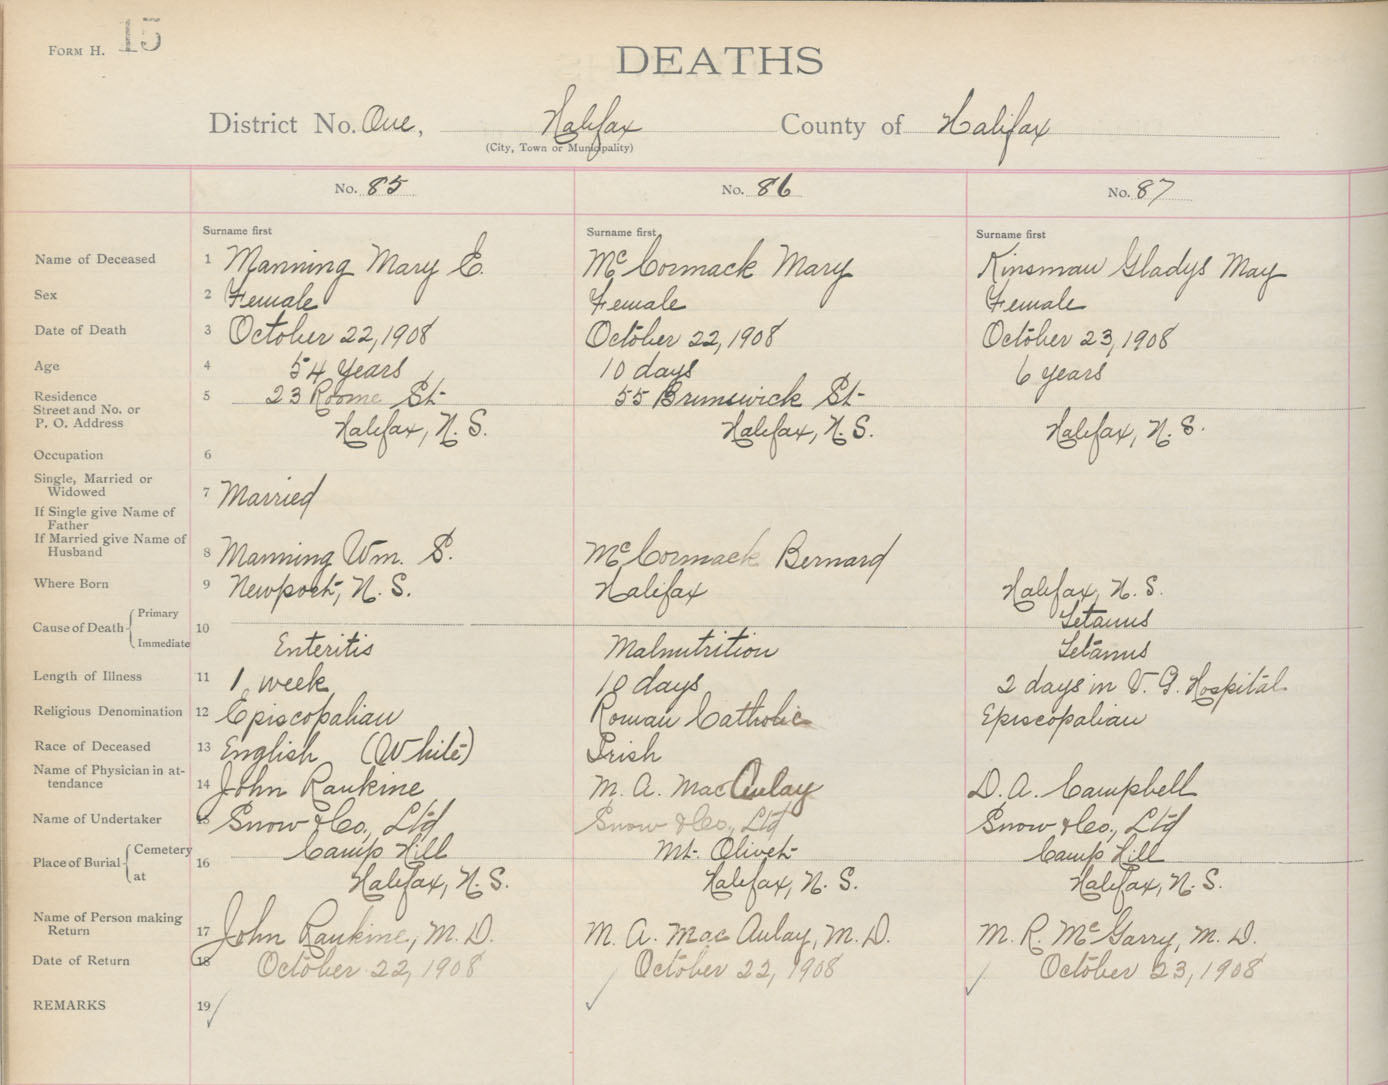 Form H. 15
DEATHS
District No. One, Halifax County of Halifax
(City, Town or Municipality)
No. 85 No. 86 No. 87
Surname first Surname first Surname first
Name of Deceased 1 Manning Mary E. McCormack Mary Kinsman Gladys May
Sex 2 Female Female Female
Date of Death 3 October 22, 1908 October 22, 1908 October 23, 1908
Age 4 54 years 10 days 6 years
Residence 5 23 Roome St 55 Brunswick St
Street and No. or
P. O. Address Halifax, N. S. Halifax, N. S. Halifax, N. S.
Occupation 6
Single, Married or
Widowed 7 Married
If Single give Name of
Father
If Married give Name of
Husband 8 Manning Wm. S. McCormack Bernard
Where Born 9 Newport, N. S. Halifax Halifax, N. S.
Cause of Death Primary 10 Tetanus
Immediate Enteritis Malnutrition Tetanus
Length of Illness 11 1 week 10 days 2 days in V. G. Hospital
Religious Denomination 12 Episcopalian Roman Catholic Episcopalian
Race of Deceased 13 English (White) Irish
Name of Physician in at-
tendance 14 John Rankine M. A. MacAulay D. A. Campbell
Name of Undertaker 15 Snow & Co., Ltd Snow & Co., Ltd Snow & Co., Ltd
Place of Burial Cemetery 16 Camp Hill Mt. Olivet Camp Hill
at Halifax, N. S. Halifax, N. S. Halifax, N. S.
Name of Person making
Return 17 John Rankine, M. D. M. A. MacAulay, M. D. M. R. McGarry, M. D.
Date of Return 18 October 22, 1908 October 22, 1908 October 23, 1908
REMARKS 19